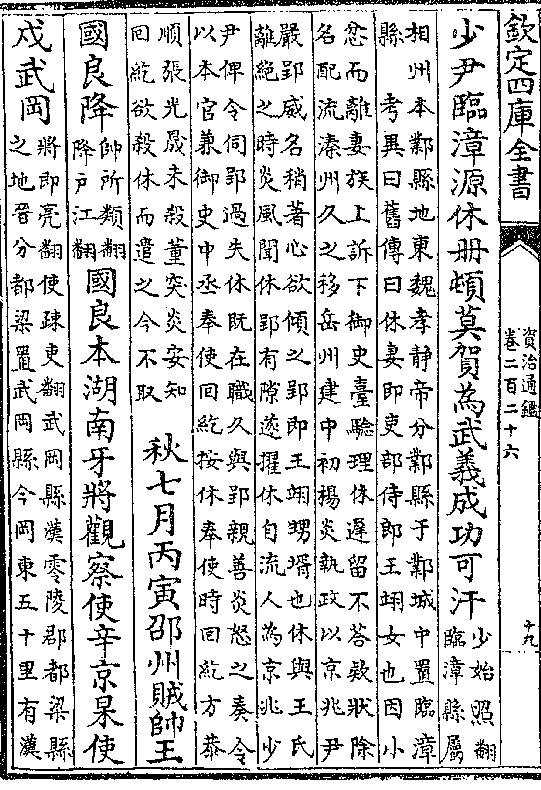 欽定四庫全書
資治通鑑
卷二百二十六
十九
少尹臨漳源休冊頓莫賀為武義成功可汗
少始照翻
臨漳縣屬
相州本鄴縣地東魏孝静帝分鄴縣于鄴城中置臨漳
縣 考異曰舊傳曰休妻即吏部侍郎王翊女也因小
忿而離妻族上訴下御史臺驗理休遲留不荅欵狀除
名配流溱州久之移岳州建中初楊炎執政以京兆尹
嚴郢威名稍著心欲傾之郢即王翊甥壻也休與王氏
離絶之時炎風聞休郢有隙遂擢休自流人為京兆少
尹俾令伺郢過失休既在職久與郢親善炎怒之奏令
以本官兼御史中丞奉使回紇按休奉使時回紇方恭
順張光晟未殺董突炎安知
回紇欲殺休而遣之今不取
秋七月丙寅邵州賊帥王
國良降
帥所類翻
降戸江翻
國良本湖南牙將觀察使辛京杲使
戍武岡
將即亮翻使疎吏翻武岡縣漢零陵郡都梁縣
之地晉分都梁置武岡縣今岡東五十里有漢